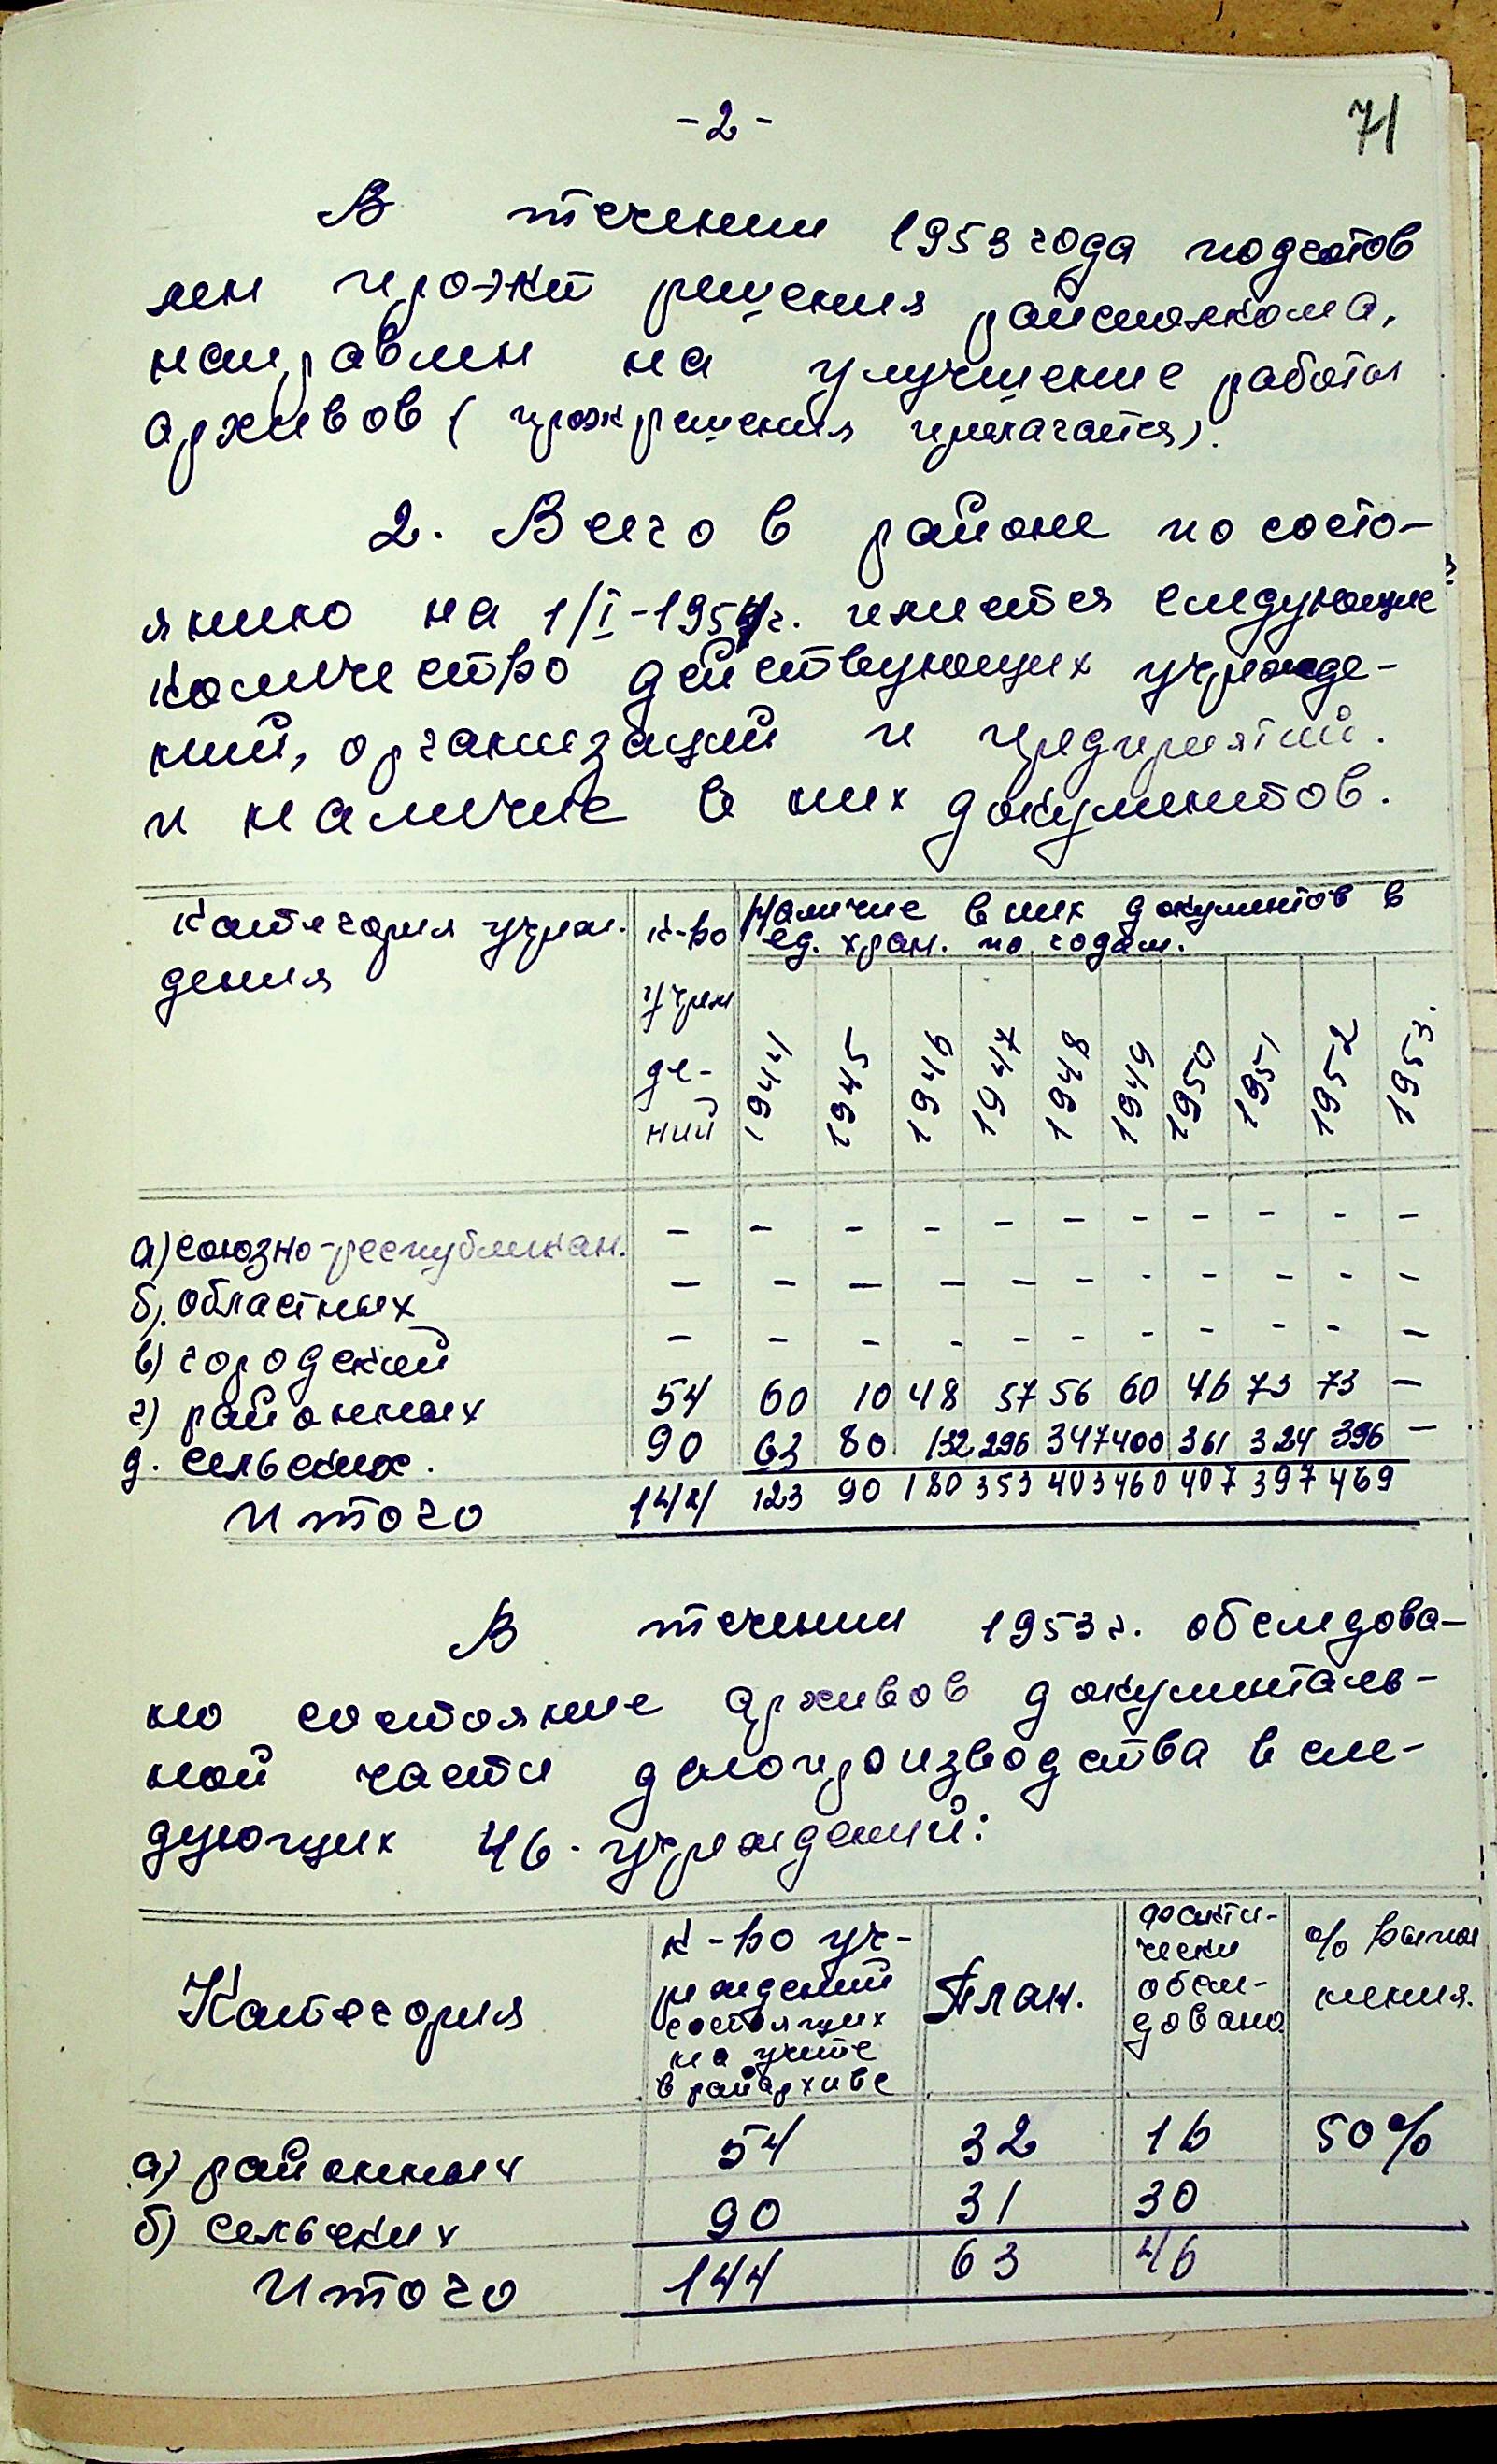 -2-
71
В течении 1953 года подготов
лен проэкт решения райисполкома,
направлен на улучшение работы
архивов ( проэк решения прилагается).
2. Всего в районе по состо-
янию на 1/I-1954г. имеется следующие
количество действующих учрежде-
ний, организаций и предприятий.
и наличие в них документов.
Категория учреж. к-во Наличие в них документов в
дения учреж ед. хран. по годам.
де-
ний 1944 1945 1946 1947 1948 1949 1950 1951 1952 1953.
а) союзно-республикан. - - - - - - - - - - -
б). областных - - - - - - - - - - -
в) городский - - - - - - - - - - -
г) районных 54 60 10 48 57 56 60 46 73 73 -
д. сельских. 90 63 80 132 296 347 400 361 324 396 -
Итого 144 123 90 180 353 403 460 407 397 469
В течении 1953 г. обследова-
но состояние архивов документаль-
ной части делопроизводства в сле-
дующих 46 - учреждений:
Категория
к-во уч-
реждений
состоящих
на учете
в райархиве
План.
факти-
чески
обсле-
довано
% выпол
нения.
а) районных 54 32 16 50%
б) сельских 90 31 30
Итого 144 63 46